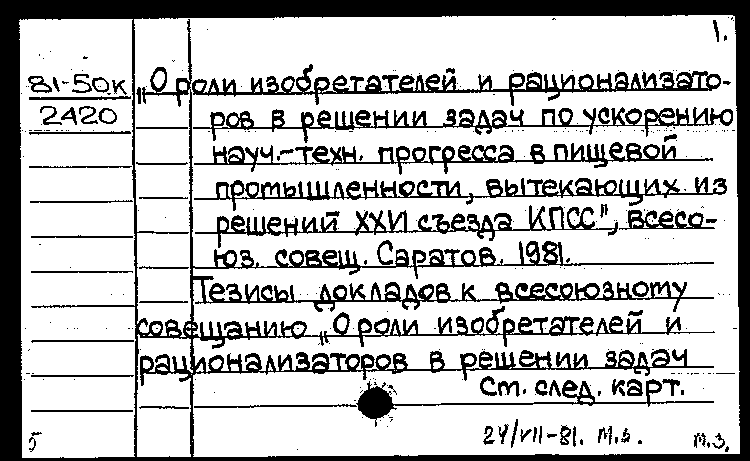 1.
81-50к
2420
„О роли изобретателей и рационализато-
ров в решении задач по ускорению
науч.-техн. прогресса в пищевой
промышленности, вытекающих из
решений XXVI съезда КПСС", всесо-
юз. совещ. Саратов. 1981.
Тезисы докладов к всесоюзному
совещанию „О роли изобретателей и
рационализаторов в решении задач
См. след. карт.
5
24/VII-81. М.З.
м.з.